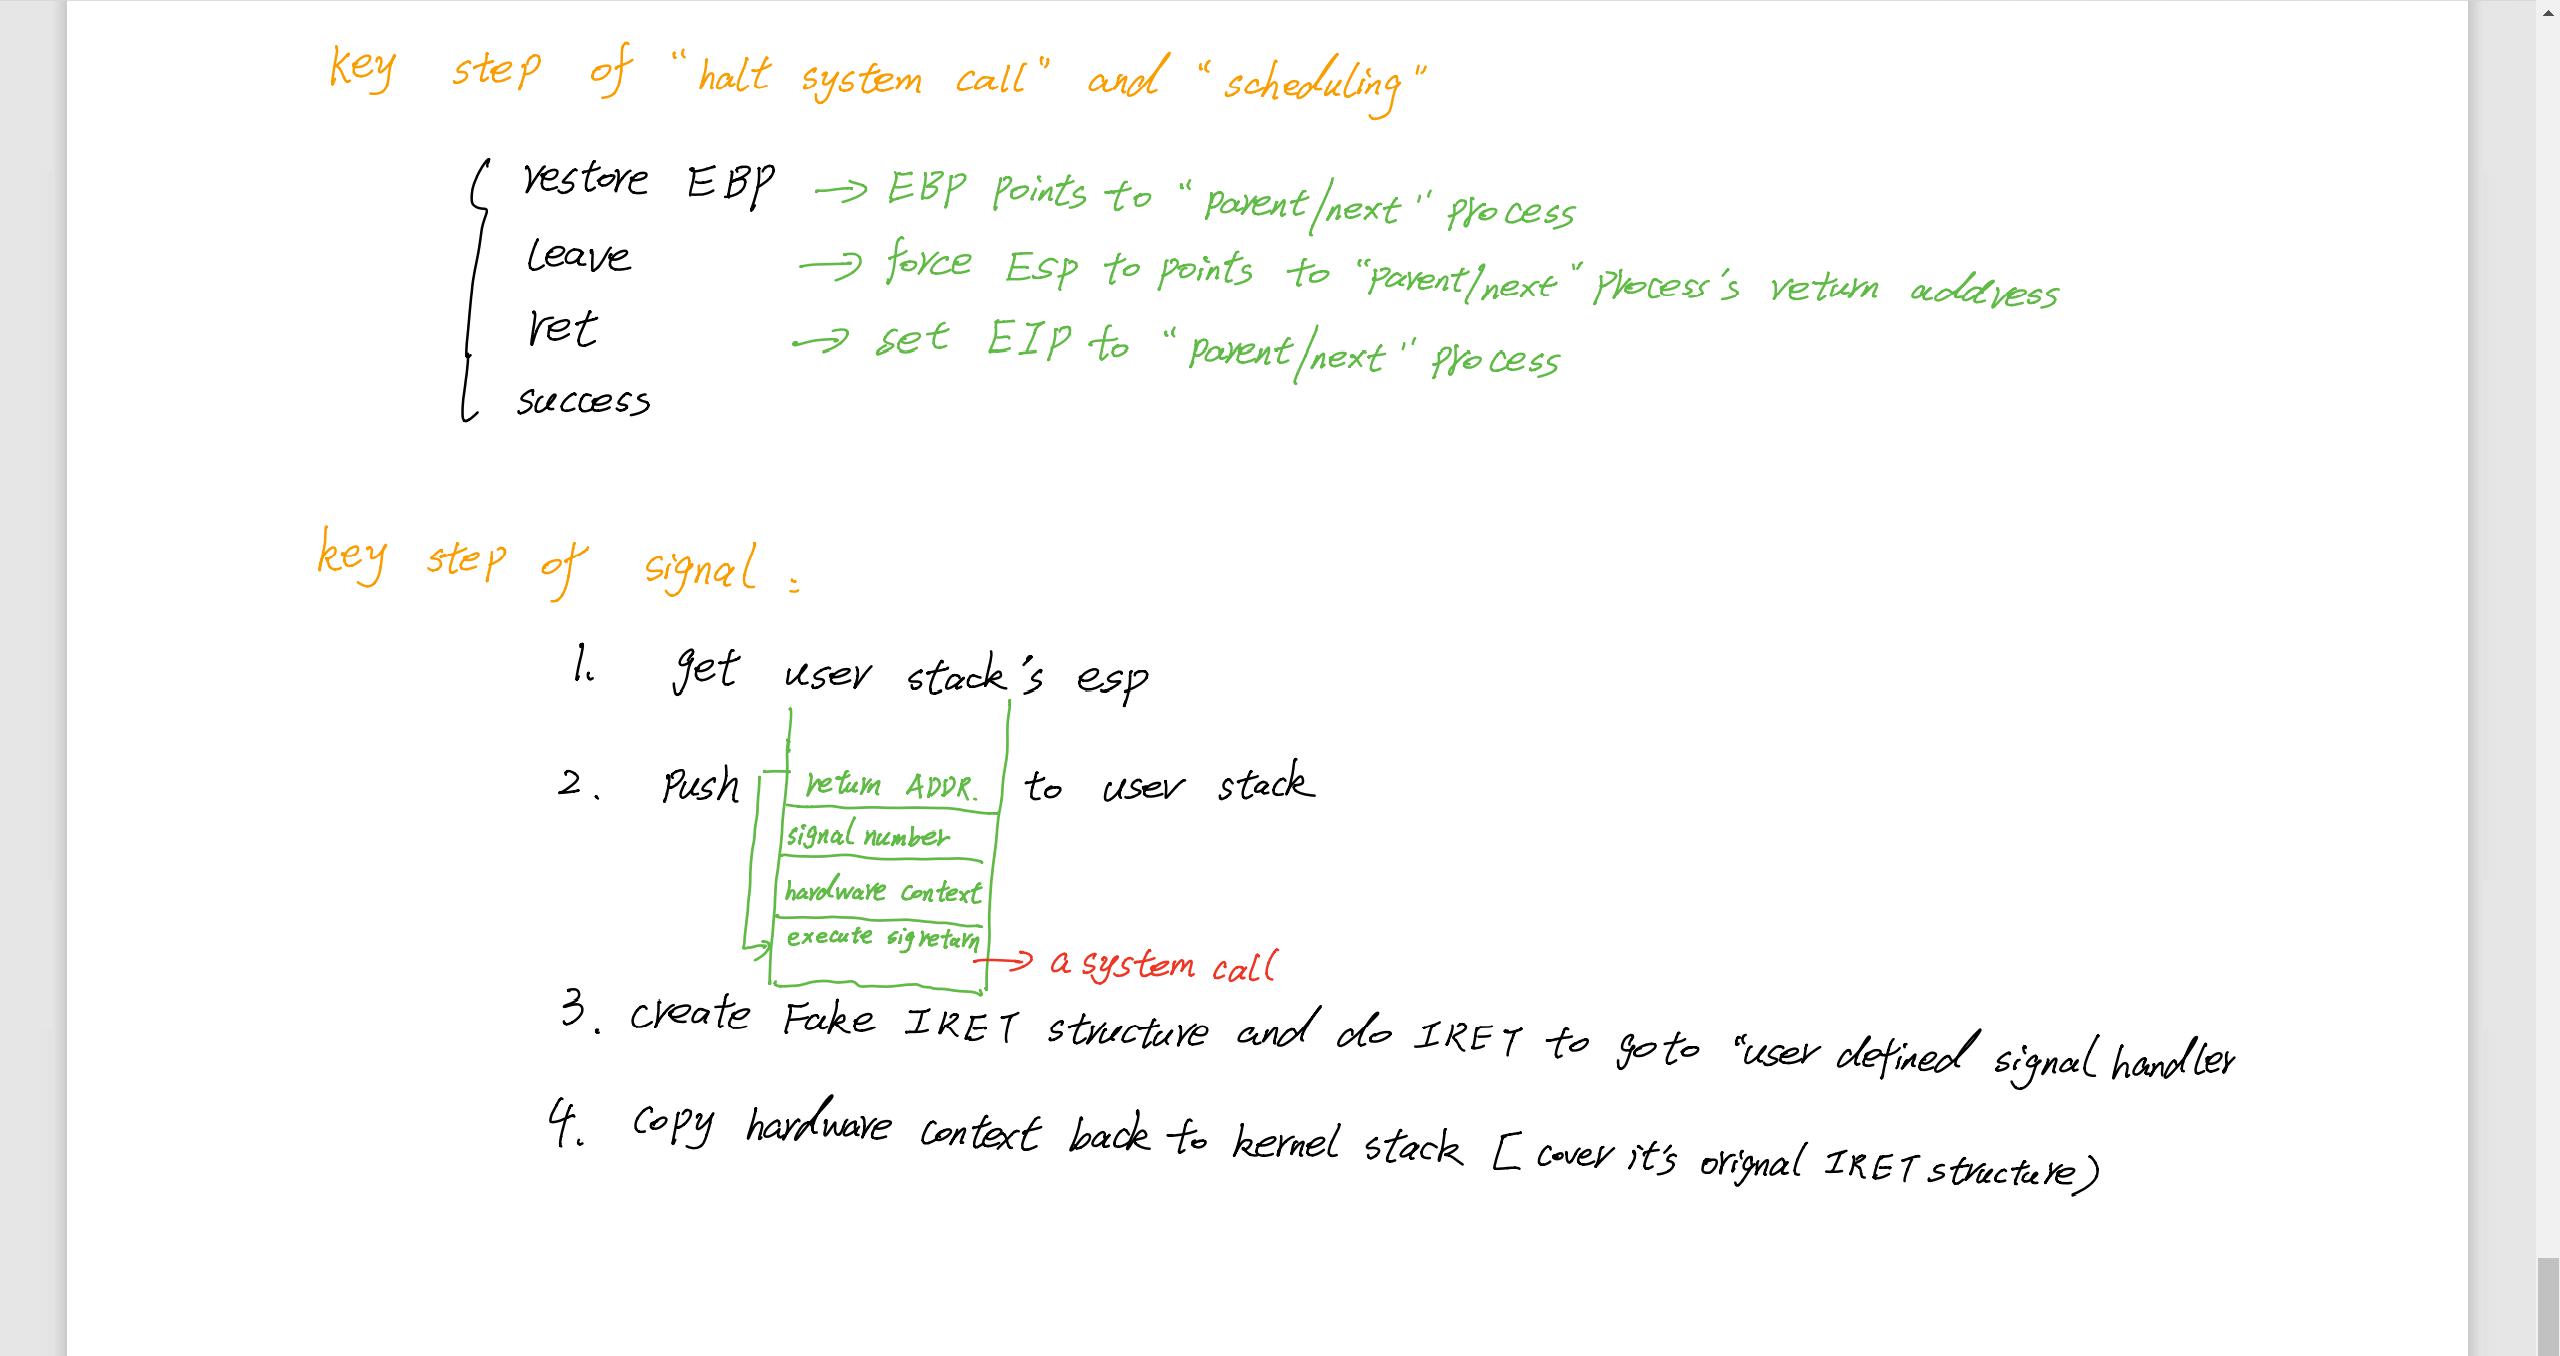 key step of "halt system call" and "scheduling"
restore EBP → EBP points to "parent/next" process
leave → force Esp to points to "parent/next" process's return address
ret → set EIP to "parent/next" process
success
key step of signal :
1. get user stack's esp
2. Push return ADDR. to user stack
signal number
hardware context
execute sigreturn → a system call
3. create Fake IRET structure and do IRET to goto "user defined signal handler
4. copy hardware context back to kernel stack [ cover it's orignal IRET structure)